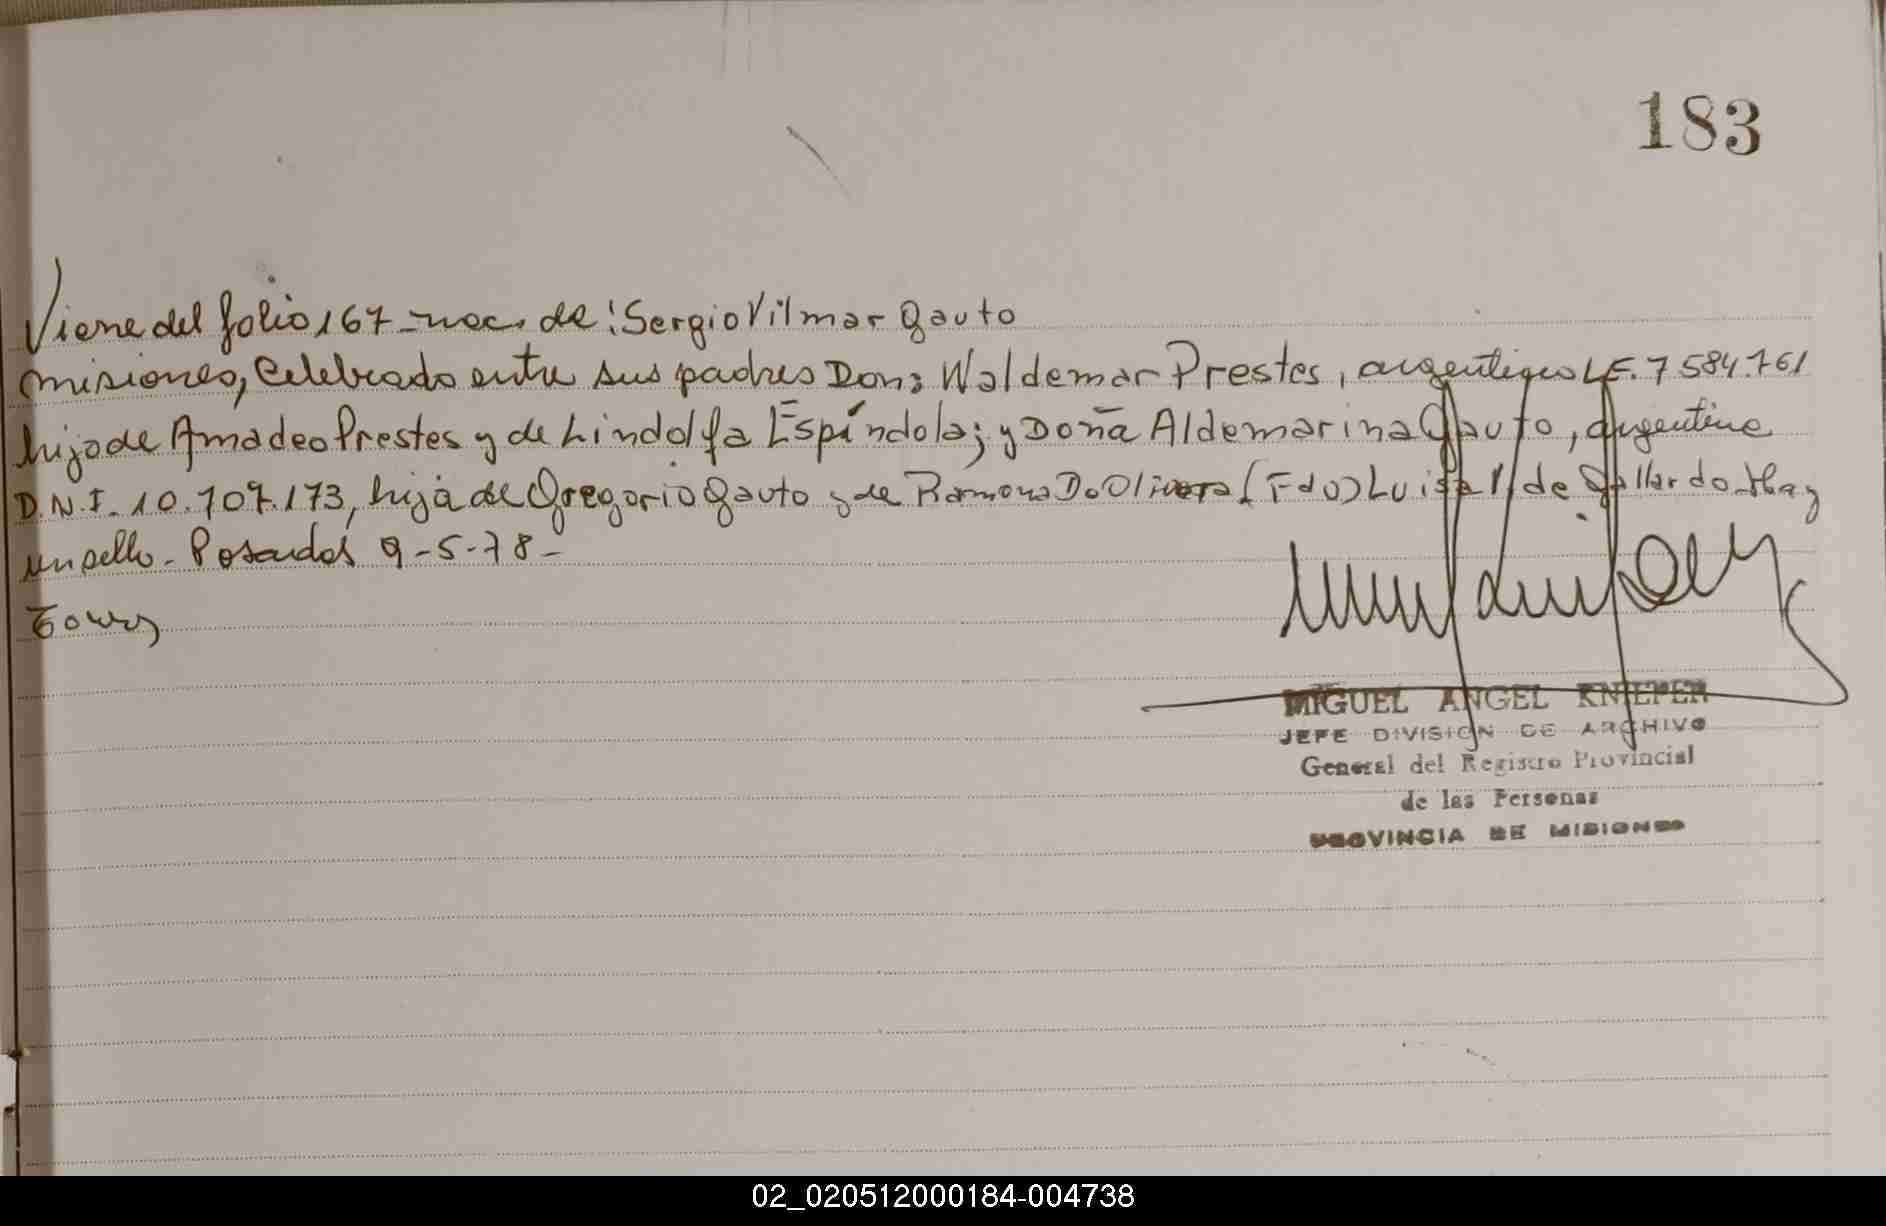 183
Viene del folio 167 - nac. de: Sergio Vilmar Gauto
Misiones, Celebrado entre sus padres Don: Waldemar Prestes, argentino L.E. 7584.761
hijo de Amadeo Prestes y de Lindolfa Espíndola; y Doña Aldemarina Gauto, argentina
D.N.I. 10.707.173, hija de Gregorio Gauto y de Ramona Do Olivera (Fdo) Luisa V de Gallardo - Hay
un sello - Posadas 9-5-78 -
MIGUEL ANGEL KNIEPER
JEFE DIVISION DE ARCHIVO
General del Registro Provincial
de las Personas
PROVINCIA DE MISIONES
02_020512000184-004738